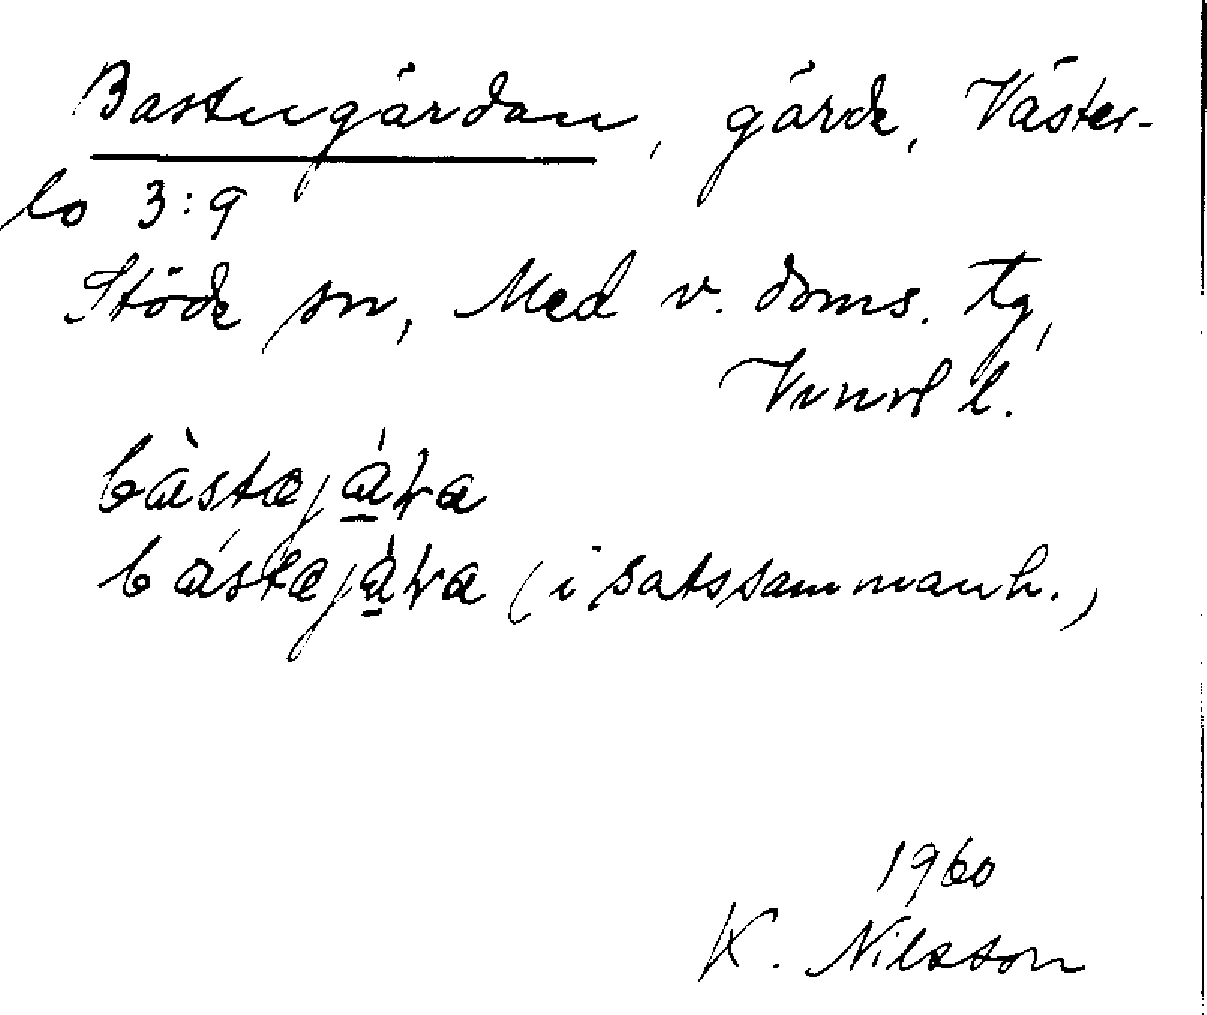 Bastugärdan, gärde, Väster-
lo 3:9
Stöde sn, Med v. doms. tg,
Vnorl l.
bàstαjáɽa
bástαjáɽa (i satssammanh.)
1960
K. Nilsson